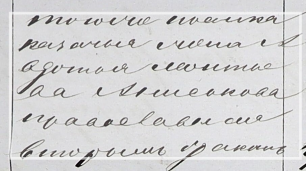 тогоже полка
казачья жена А
вдотья Монтье
ва Аксенова
православная
вторымъ бракомъ